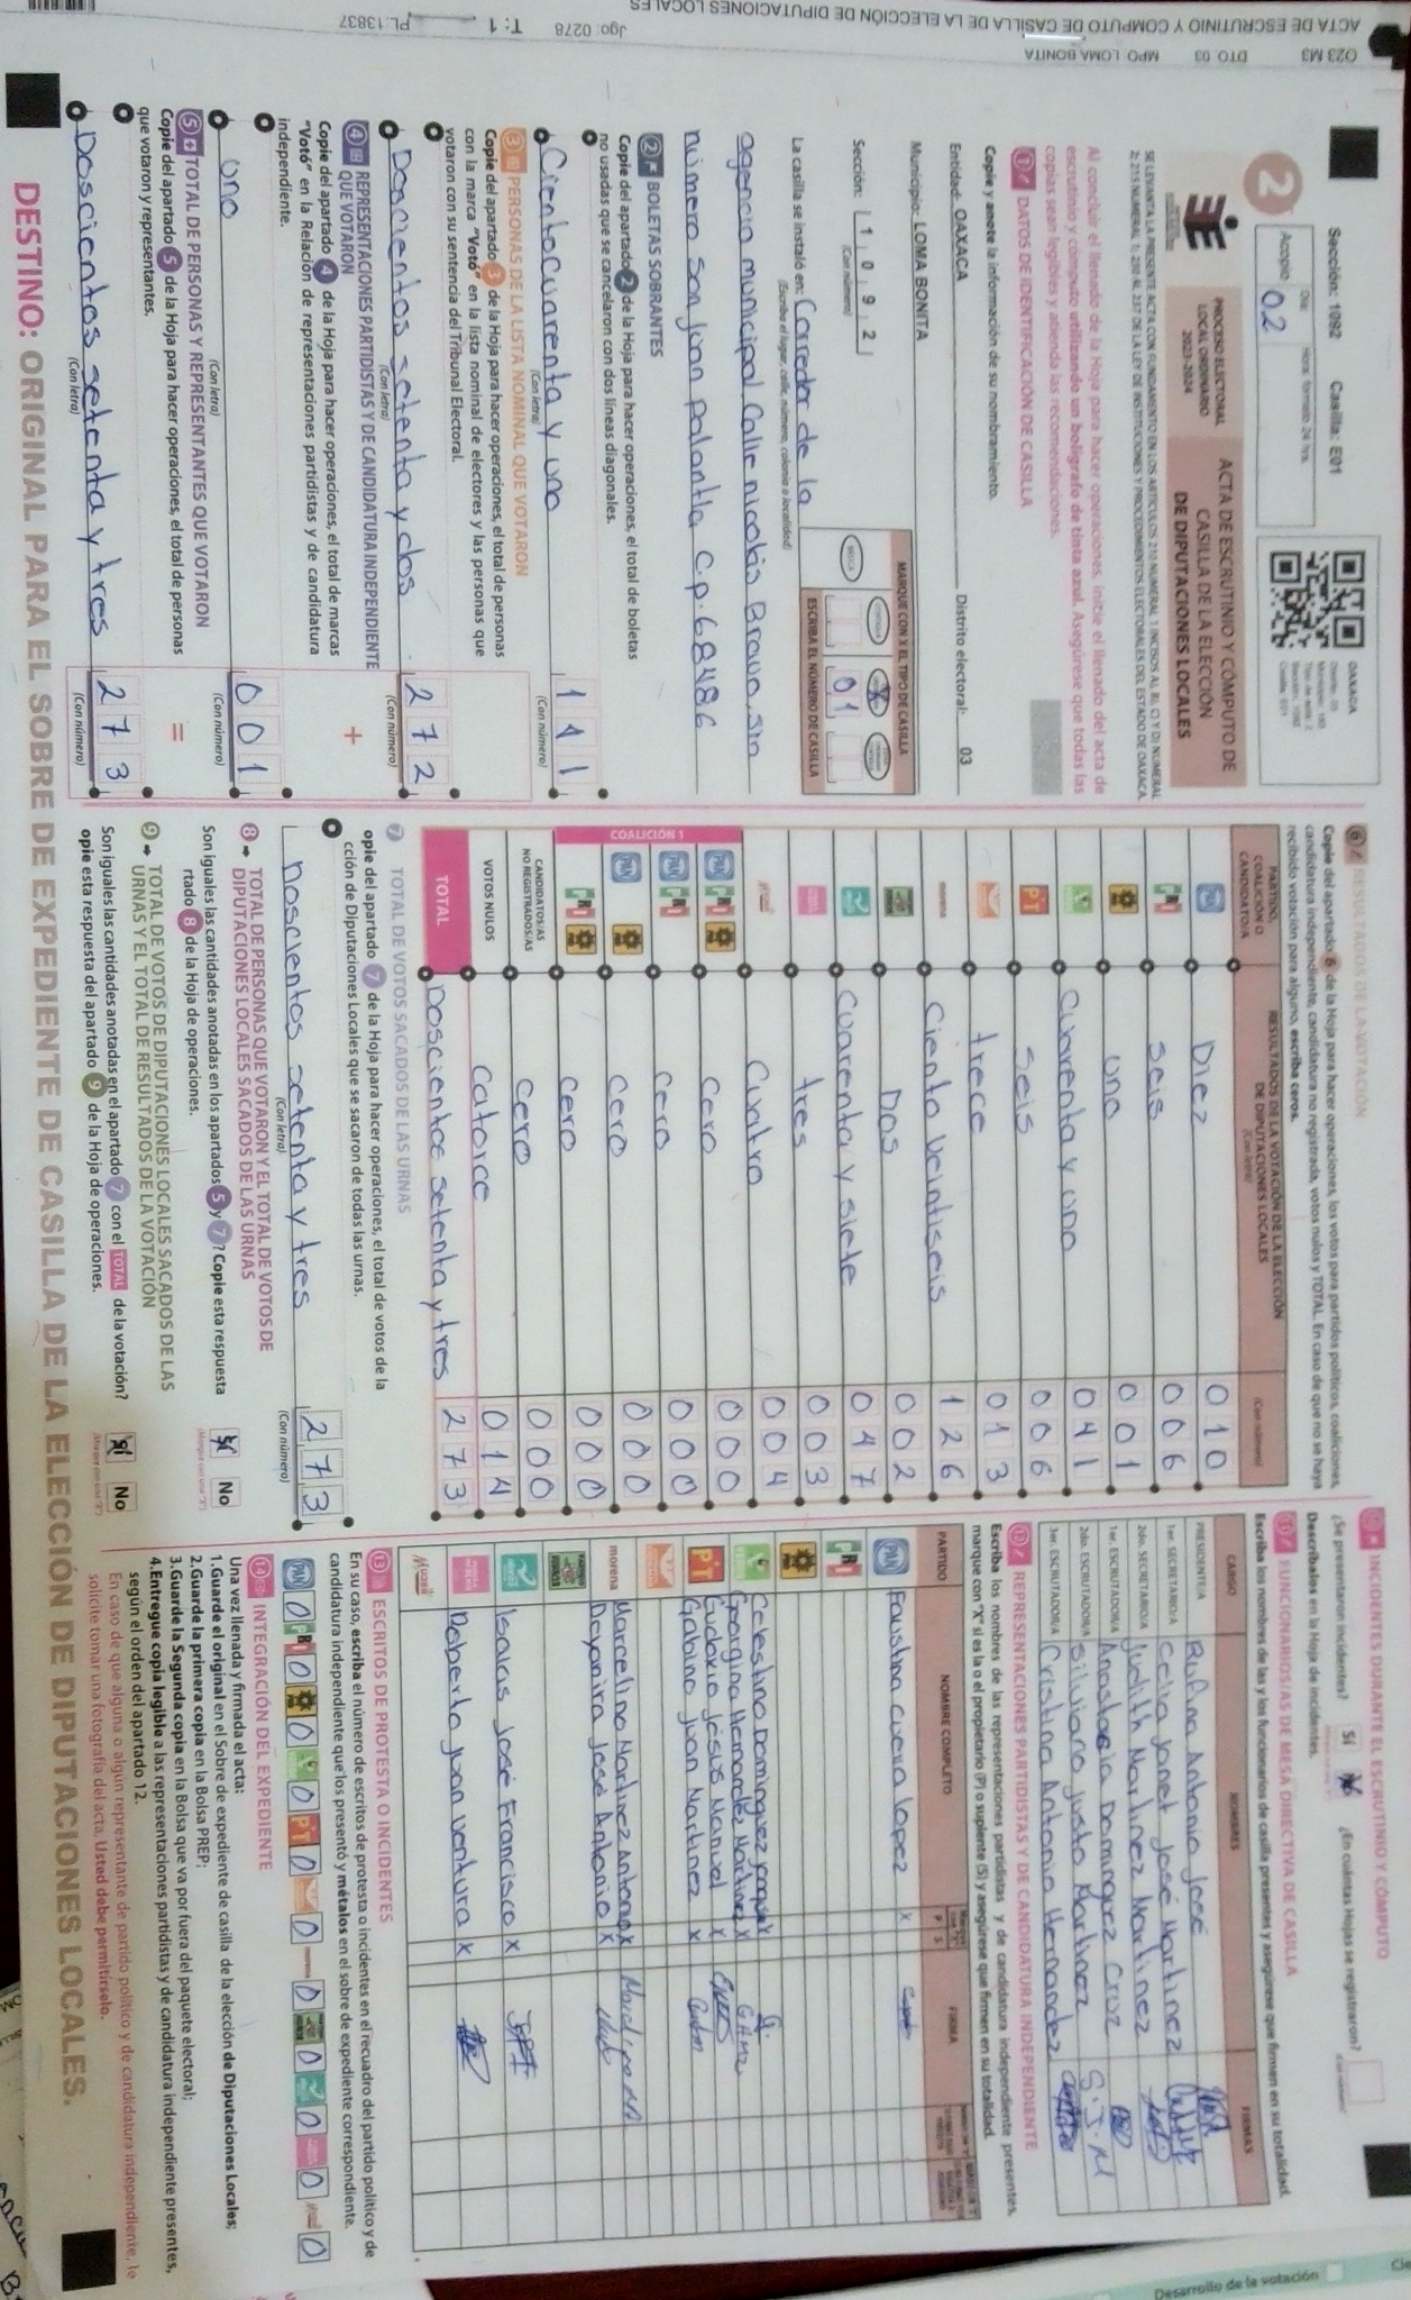 Sección: 1092 Casilla: E01
2
Acopio
02
Día:
Hora: formato 24 hrs.
OAXACA
PROCESO ELECTORAL
LOCAL ORDINARIO
2023-2024
ACTA DE ESCRUTINIO Y CÓMPUTO DE
CASILLA DE LA ELECCIÓN
DE DIPUTACIONES LOCALES
Al concluir el llenado de la Hoja para hacer operaciones, inicie el llenado del acta de
escrutinio y cómputo utilizando un bolígrafo de tinta azul. Asegúrese que todas las
copias sean legibles y atienda las recomendaciones.
1 DATOS DE IDENTIFICACIÓN DE CASILLA
Copie y anote la información de su nombramiento.
Entidad: OAXACA Distrito electoral: 03
Municipio: LOMA BONITA
Sección: 1 0 9 2
(Con número)
MARQUE CON X EL TIPO DE CASILLA
BÁSICA
X
01
ESCRIBA EL NÚMERO DE CASILLA
La casilla se instaló en: Corredor de la
(Escriba el lugar, calle, número, colonia o localidad)
agencia municipal Calle nicolás Bravo, sin
número san juan palantla C.p. 68486
2 BOLETAS SOBRANTES
Copie del apartado 2 de la Hoja para hacer operaciones, el total de boletas
no usadas que se cancelaron con dos líneas diagonales.
Ciento cuarenta y uno 1 4 1
(Con letra) (Con número)
3 PERSONAS DE LA LISTA NOMINAL QUE VOTARON
Copie del apartado 3 de la Hoja para hacer operaciones, el total de personas
con la marca "Votó" en la lista nominal de electores y las personas que
votaron con su sentencia del Tribunal Electoral.
Doscientos setenta y dos 2 7 2
(Con letra) (Con número)
4 REPRESENTACIONES PARTIDISTAS Y DE CANDIDATURA INDEPENDIENTE
QUE VOTARON
+
Copie del apartado 4 de la Hoja para hacer operaciones, el total de marcas
"Votó" en la Relación de representaciones partidistas y de candidatura
independiente.
uno 0 0 1
(Con letra) (Con número)
5 TOTAL DE PERSONAS Y REPRESENTANTES QUE VOTARON
Copie del apartado 5 de la Hoja para hacer operaciones, el total de personas
que votaron y representantes.
=
Doscientos setenta y tres 2 7 3
(Con letra) (Con número)
6 RESULTADOS DE LA VOTACIÓN
Copie del apartado 6 de la Hoja para hacer operaciones, los votos para partidos políticos, coaliciones,
candidatura independiente, candidatura no registrada, votos nulos y TOTAL. En caso de que no se haya
recibido votación para alguno, escriba ceros.
PARTIDO,
COALICIÓN O
CANDIDATO/A
RESULTADOS DE LA VOTACIÓN DE LA ELECCIÓN
DE DIPUTACIONES LOCALES
(Con letra) (Con número)
PAN Diez 0 1 0
PRI seis 0 0 6
uno 0 0 1
Cuarenta y uno 0 4 1
PT seis 0 0 6
trece 0 1 3
morena Ciento veintiseis 1 2 6
Dos 0 0 2
Cuarenta y siete 0 4 7
tres 0 0 3
Cuatro 0 0 4
COALICIÓN 1
PAN PRI Cero 0 0 0
PAN PRI Cero 0 0 0
PAN Cero 0 0 0
PRI Cero 0 0 0
CANDIDATOS/AS
NO REGISTRADOS/AS Cero 0 0 0
VOTOS NULOS Catorce 0 1 4
TOTAL Doscientos setenta y tres 2 7 3
7 TOTAL DE VOTOS SACADOS DE LAS URNAS
opie del apartado 7 de la Hoja para hacer operaciones, el total de votos de la
cción de Diputaciones Locales que se sacaron de todas las urnas.
Doscientos setenta y tres 2 7 3
(Con letra) (Con número)
8 TOTAL DE PERSONAS QUE VOTARON Y EL TOTAL DE VOTOS DE
DIPUTACIONES LOCALES SACADOS DE LAS URNAS
Son iguales las cantidades anotadas en los apartados 5 y 7? Copie esta respuesta
rtado 8 de la Hoja de operaciones.
Sí No
9 TOTAL DE VOTOS DE DIPUTACIONES LOCALES SACADOS DE LAS
URNAS Y EL TOTAL DE RESULTADOS DE LA VOTACIÓN
Son iguales las cantidades anotadas en el apartado 7 con el TOTAL de la votación?
opie esta respuesta del apartado 9 de la Hoja de operaciones.
Sí No
INCIDENTES DURANTE EL ESCRUTINIO Y CÓMPUTO
¿Se presentaron incidentes? Sí No ¿En cuántas Hojas se registraron?
Descríbalos en la Hoja de incidentes.
11 FUNCIONARIOS/AS DE MESA DIRECTIVA DE CASILLA
Escriba los nombres de las y los funcionarios de casilla presentes y asegúrese que firmen en su totalidad.
CARGO NOMBRES FIRMAS
PRESIDENTE/A Rufina Antonio José
1er. SECRETARIO/A Celia Janet José Martinez
2do. SECRETARIO/A Judith Martinez Martinez
1er. ESCRUTADOR/A Anastacia Dominguez Cruz
2do. ESCRUTADOR/A Silviano justo Martinez S.J.M
3er. ESCRUTADOR/A Cristina Antonio Hernandez
12 REPRESENTACIONES PARTIDISTAS Y DE CANDIDATURA INDEPENDIENTE
Escriba los nombres de las representaciones partidistas y de candidatura independiente presentes,
marque con "X" si es la o el propietario (P) o suplente (S) y asegúrese que firmen en su totalidad.
PARTIDO NOMBRE COMPLETO P S FIRMA
PAN Faustina Cueva lopez x
PRI
Celestino Dominguez joaquin x
Georgina Hernandez Martinez x G.H.M.
PT Eudoxio Jésus Manuel x
Gabino juan Martinez x
morena Marcelino Martinez Antonio x
Deyanira José Antonio x
Isaias José Francisco x
Roberto juan Ventura x
13 ESCRITOS DE PROTESTA O INCIDENTES
En su caso, escriba el número de escritos de protesta o incidentes en el recuadro del partido político y de
candidatura independiente que los presentó y métalos en el sobre de expediente correspondiente.
PAN 0 PRI 0 0 0 PT 0 0 0 0 0 0 0
14 INTEGRACIÓN DEL EXPEDIENTE
Una vez llenada y firmada el acta:
1.Guarde el original en el Sobre de expediente de casilla de la elección de Diputaciones Locales;
2.Guarda la primera copia en la Bolsa PREP;
3.Guarde la Segunda copia en la Bolsa que va por fuera del paquete electoral;
4.Entregue copia legible a las representaciones partidistas y de candidatura independiente presentes,
según el orden del apartado 12.
En caso de que alguna o algún representante de partido político y de candidatura independiente, le
solicite tomar una fotografía del acta, Usted debe permitírselo.
DESTINO: ORIGINAL PARA EL SOBRE DE EXPEDIENTE DE CASILLA DE LA ELECCIÓN DE DIPUTACIONES LOCALES.
ACTA DE ESCRUTINIO Y COMPUTO DE CASILLA DE LA ELECCIÓN DE DIPUTACIONES LOCALES
023 M3 DTO 03 MPO LOMA BONITA
Jgo: 0278 T: 1 PL: 13837
Desarrollo de la votación